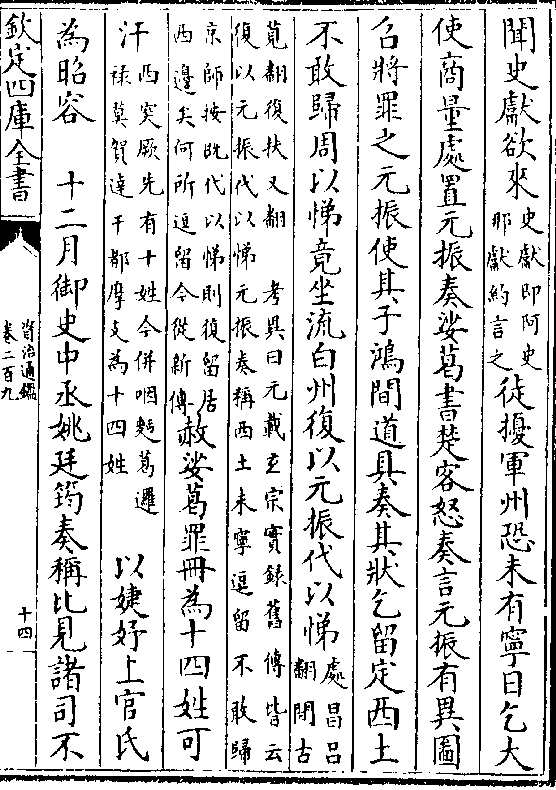 聞史獻欲來史獻即阿史那獻約言之徒擾軍州恐未有寧日乞大
使商量處置元振奏娑葛書楚客怒奏言元振有異圖
召將罪之元振使其子鴻間道具奏其狀乞留定西土
不敢歸周以悌竟坐流白州復以元振代以悌處昌呂翻閒古
莧翻復扶又翻 考異曰元載玄宗實錄舊傳皆云
復以元振代以悌元振奏稱西土未寧逗留不敢歸
京師按既代以悌則復留居西邊矣何所逗留今從新傳赦娑葛罪冊為十四姓可
汗西突厥先有十姓今併咽麪葛邏祿莫賀達干都摩支為十四姓 以婕妤上官氏
為昭容 十二月御史中丞姚廷筠奏稱比見諸司不
欽定四庫全書
資治通鑑
卷二百九
十四